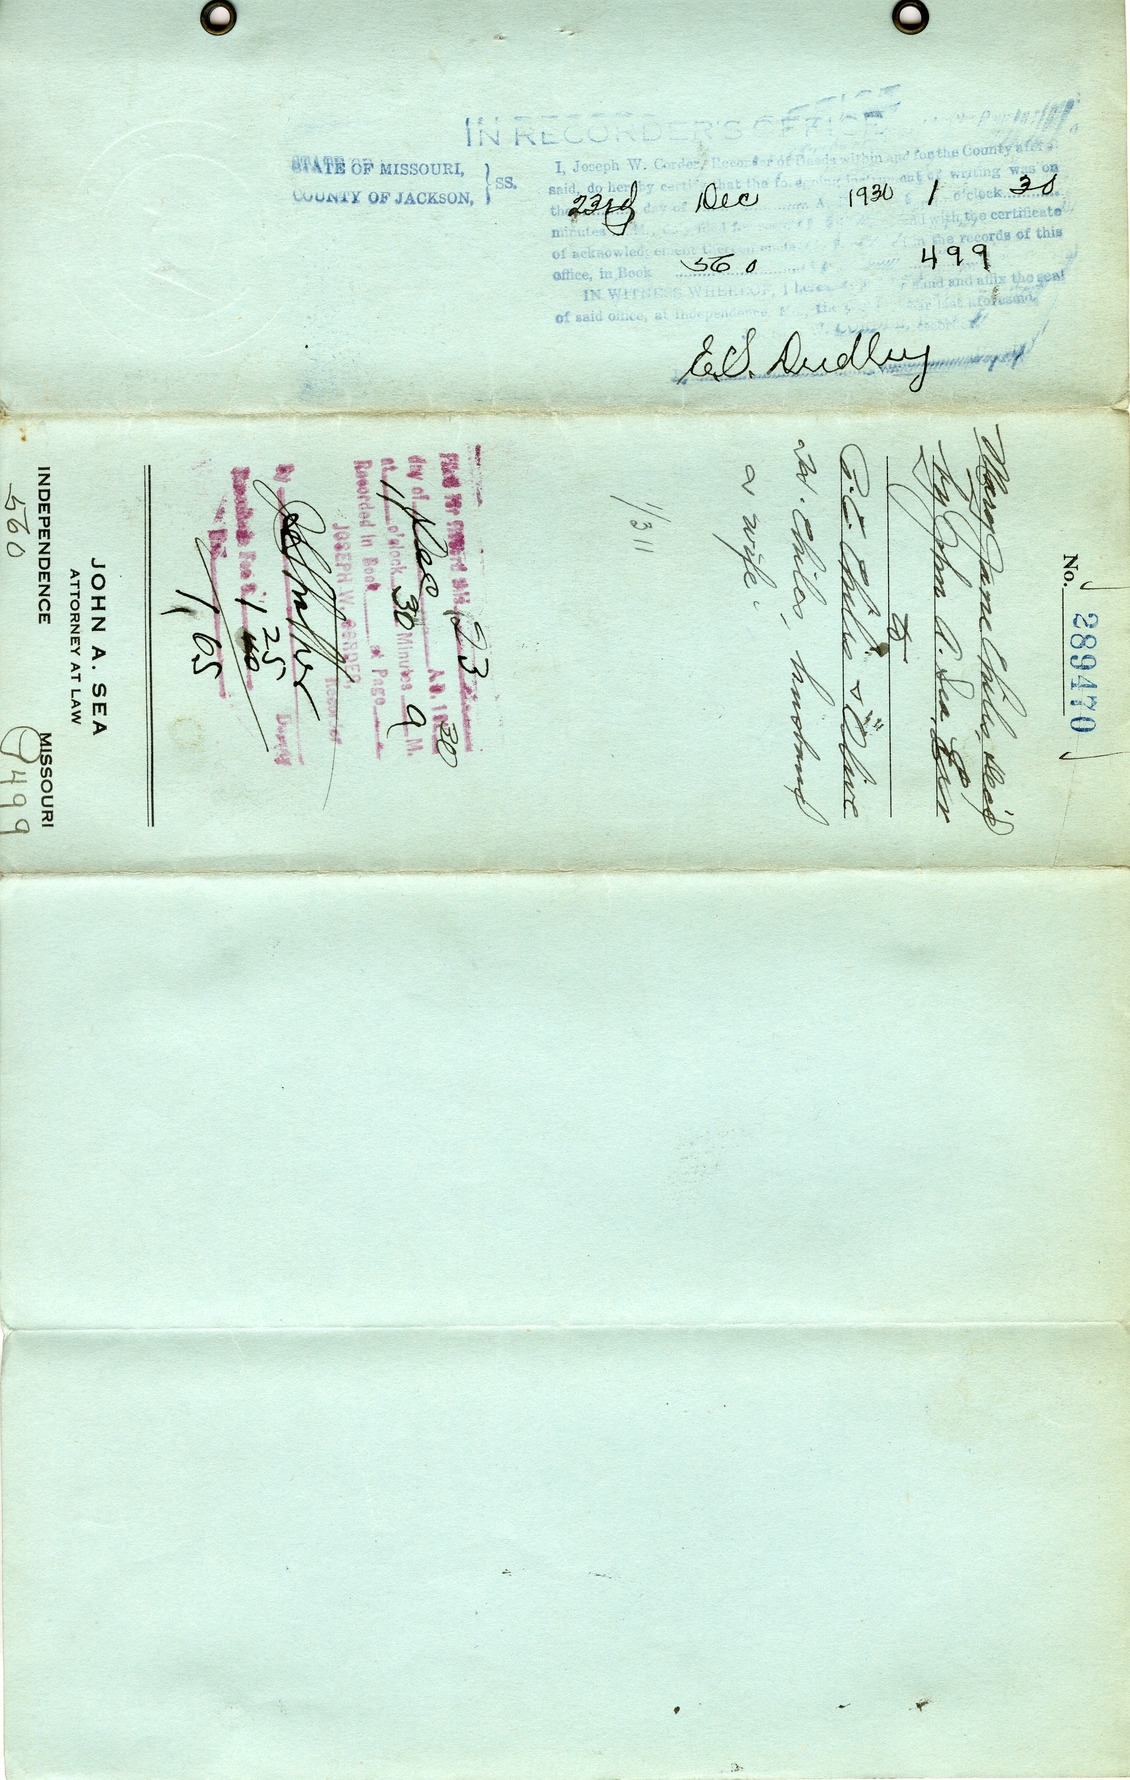 IN RECORDER'S OFFICE
STATE OF MISSOURI,
COUNTY OF JACKSON, } SS.
I, Joseph W. Corder, Recorder of Deeds within and for the County afore-
said, do hereby certify that the foregoing instrument of writing was on
the 23rd day of Dec A. 1930 1 o'clock 30
minutes M., and with the certificate
of acknowledgement thereon in the records of this
office, in Book 560 499
IN WITNESS WHEREOF, I hereunto hand and affix the seal
of said office, at Independence, Mo., the last aforesaid.
E.S. Dudley
No. 289470
Mary Jane Chiles, dec'd
by John A. Sea, Exr
to
C.C. Chiles & Olive
W. Chiles, husband
a wife.
1/311
Filed for Record this 23
day of Dec A.D. 1930
at 11 o'clock 30 Minutes a M.
Recorded in Book at Page
JOSEPH W. CORDER,
Recorder
By Deputy
Recording Fee $ 1 25
40
1,65
JOHN A. SEA
ATTORNEY AT LAW
INDEPENDENCE MISSOURI
560 499